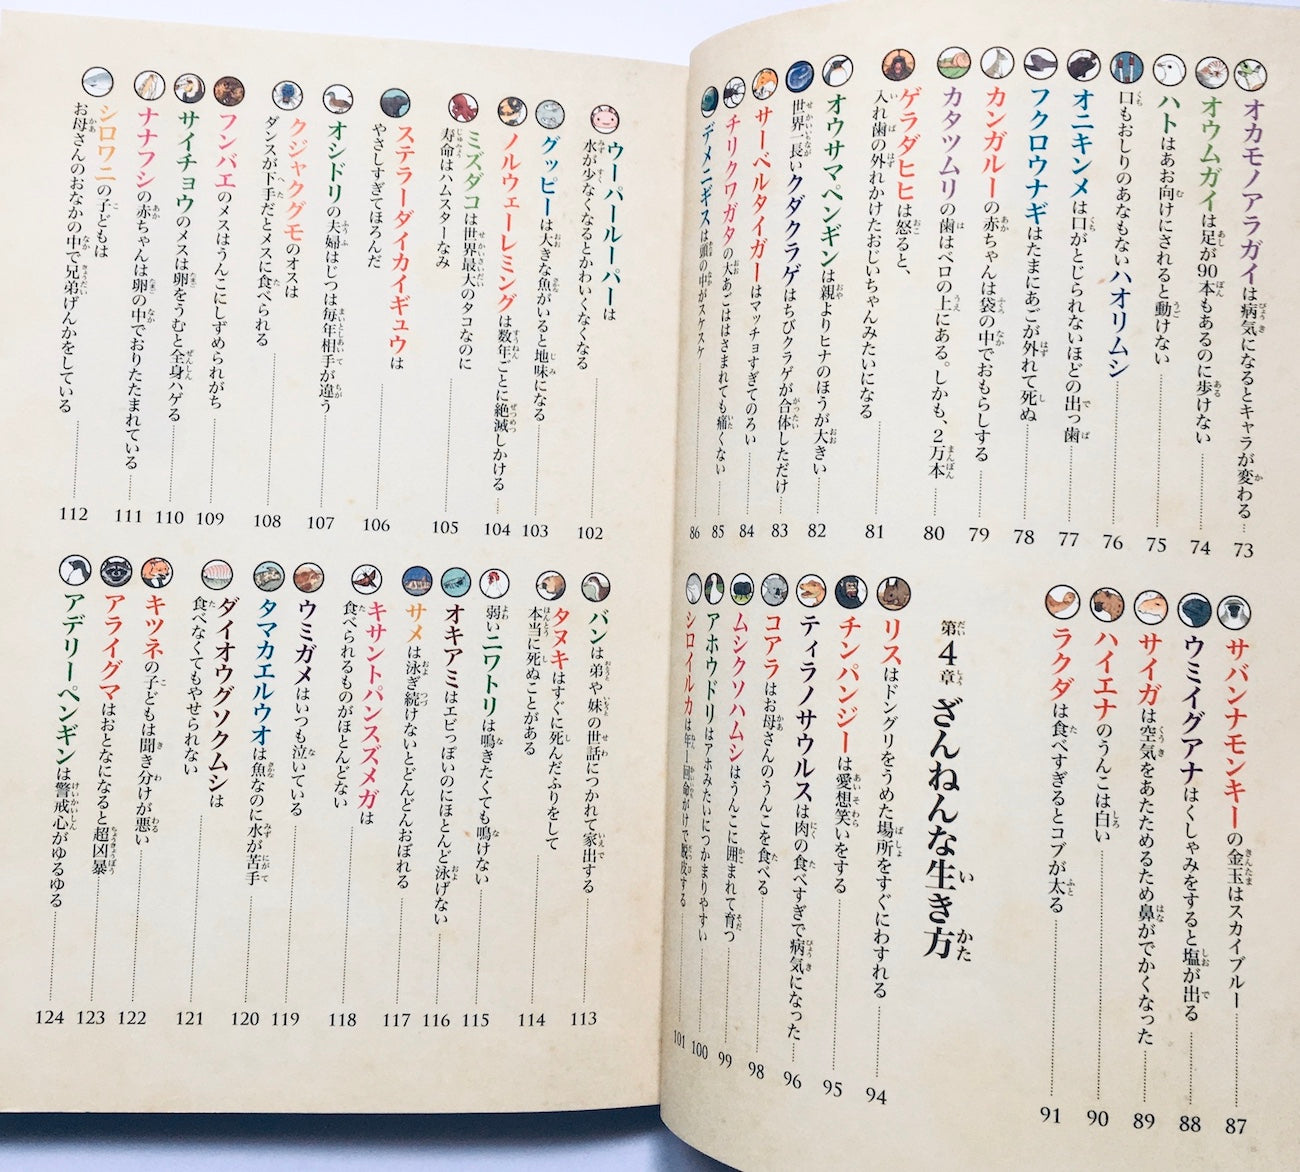 オカモノアラガイは病気になるとキャラが変わる 73
オウムガイは足が90本もあるのに歩けない 74
ハトはあお向けにされると動けない 75
口もおしりのあなもないハオリムシ 76
オニキンメは口がとじられないほどの出っ歯 77
フクロウナギはたまにあごが外れて死ぬ 78
カンガルーの赤ちゃんは袋の中でおもらしする 79
カタツムリの歯はベロの上にある。しかも、2万本 80
ゲラダヒヒは怒ると、
入れ歯の外れかけたおじいちゃんみたいになる 81
オウサマペンギンは親よりヒナのほうが大きい 82
世界一長いクダクラゲはちびクラゲが合体しただけ 83
サーベルタイガーはマッチョすぎてのろい 84
チリクワガタの大あごははさまれても痛くない 85
デメニギスは頭の中がスケスケ 86
サバンナモンキーの金玉はスカイブルー 87
ウミイグアナはくしゃみをすると塩が出る 88
サイガは空気をあたためるため鼻がでかくなった 89
ハイエナのうんこは白い 90
ラクダは食べすぎるとコブが太る 91
第4章 ざんねんな生き方
リスはドングリをうめた場所をすぐにわすれる 94
チンパンジーは愛想笑いをする 95
ティラノサウルスは肉の食べすぎで病気になった 96
コアラはお母さんのうんこを食べる 98
ムシクソハムシはうんこに囲まれて育つ 99
アホウドリはアホみたいにつかまりやすい 100
シロイルカは年一回命がけで脱皮する 101
ウーパールーパーは
水が少なくなるとかわいくなくなる 102
グッピーは大きな魚がいると地味になる 103
ノルウェーレミングは数年ごとに絶滅しかける 104
ミズダコは世界最大のタコなのに
寿命はハムスターなみ 105
ステラーダイカイギュウは
やさしすぎてほろんだ 106
オシドリの夫婦はじつは毎年相手が違う 107
クジャクグモのオスは
ダンスが下手だとメスに食べられる 108
フンバエのメスはうんこにしずめられがち 109
サイチョウのメスは卵をうむと全身ハゲる 110
ナナフシの赤ちゃんは卵の中でおりたたまれている 111
シロワニの子どもは
お母さんのおなかの中で兄弟げんかをしている 112
バンは弟や妹の世話につかれて家出する 113
タヌキはすぐに死んだふりをして
本当に死ぬことがある 114
弱いニワトリは鳴きたくても鳴けない 115
オキアミはエビっぽいのにほとんど泳げない 116
サメは泳ぎ続けないとどんどんおぼれる 117
キサントパンスズメガは
食べられるものがほとんどない 118
ウミガメはいつも泣いている 119
タマカエルウオは魚なのに水が苦手 120
ダイオウグソクムシは
食べなくてもやせられない 121
キツネの子どもは聞き分けが悪い 122
アライグマはおとなになると超凶暴 123
アデリーペンギンは警戒心がゆるゆる 124